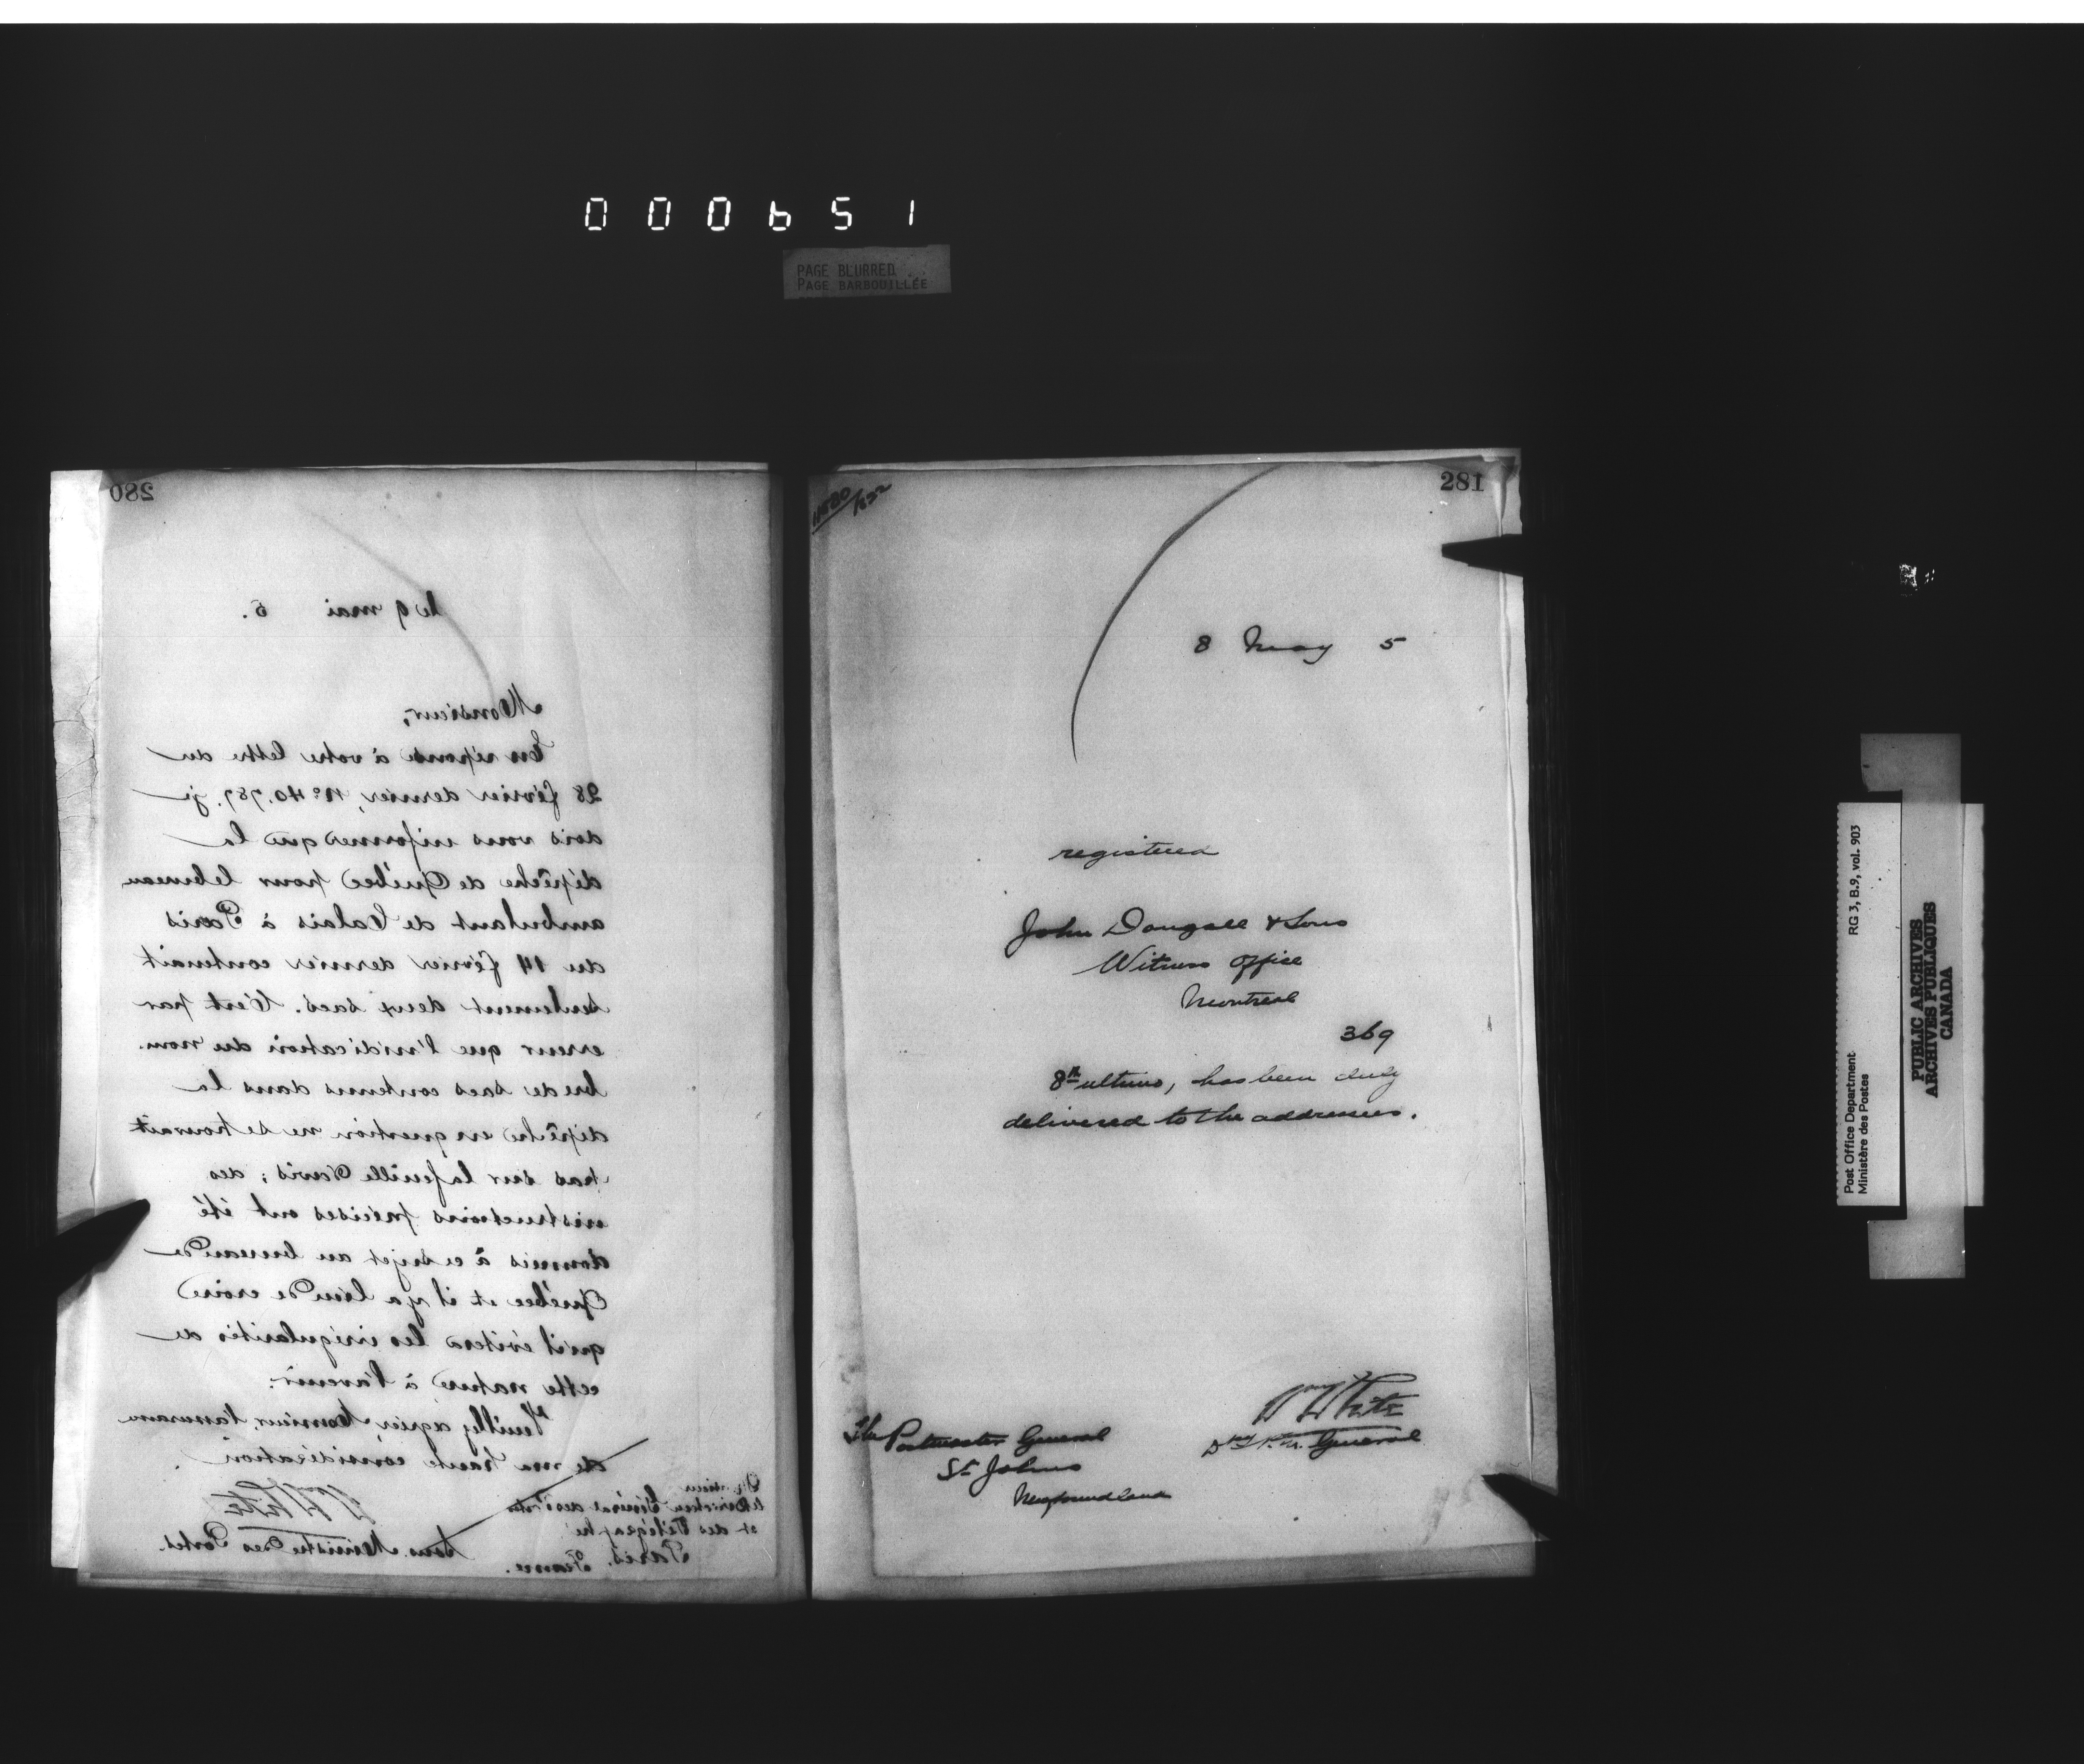 000651
PAGE BLURRED
PAGE BARBOUILLÉE
280
le 9 mai 5.
Monsieur,
En réponse à votre lettre du
28 février dernier, No 40.787. je
dois vous informer que la
dépêche de Québec pour le bureau
ambulant de Calais à Paris
du 14 février dernier contenait
seulement deux sacs. C'est par
erreur que l'indication du nom-
bre de sacs contenus dans la
dépêche en question ne se trouvait
pas sur la feuille d'avis; des
instructions précises ont été
donnees à ce sujet au bureau de
Québec et il y a lieu de croire
qu'il évitera les irrégularités de
cette nature à l'avenir.
Veuillez agréer, Monsieur, l'assurance
de ma haute considération
W White
Sous-Ministre des Postes.
Monsieur
le Directeur Général des Postes
et des Télégraphes
Paris.
France.
281
8 May 5
registered
John Dougall & Sons
Witness Office
Montreal
369
8th ultimo, has been duly
delivered to the addressees.
Wm White
Dy P.M. General
The Postmaster General
St Johns
Newfoundland
Post Office Department RG 3, B.9, vol. 903
Ministère des Postes
PUBLIC ARCHIVES
ARCHIVES PUBLIQUES
CANADA